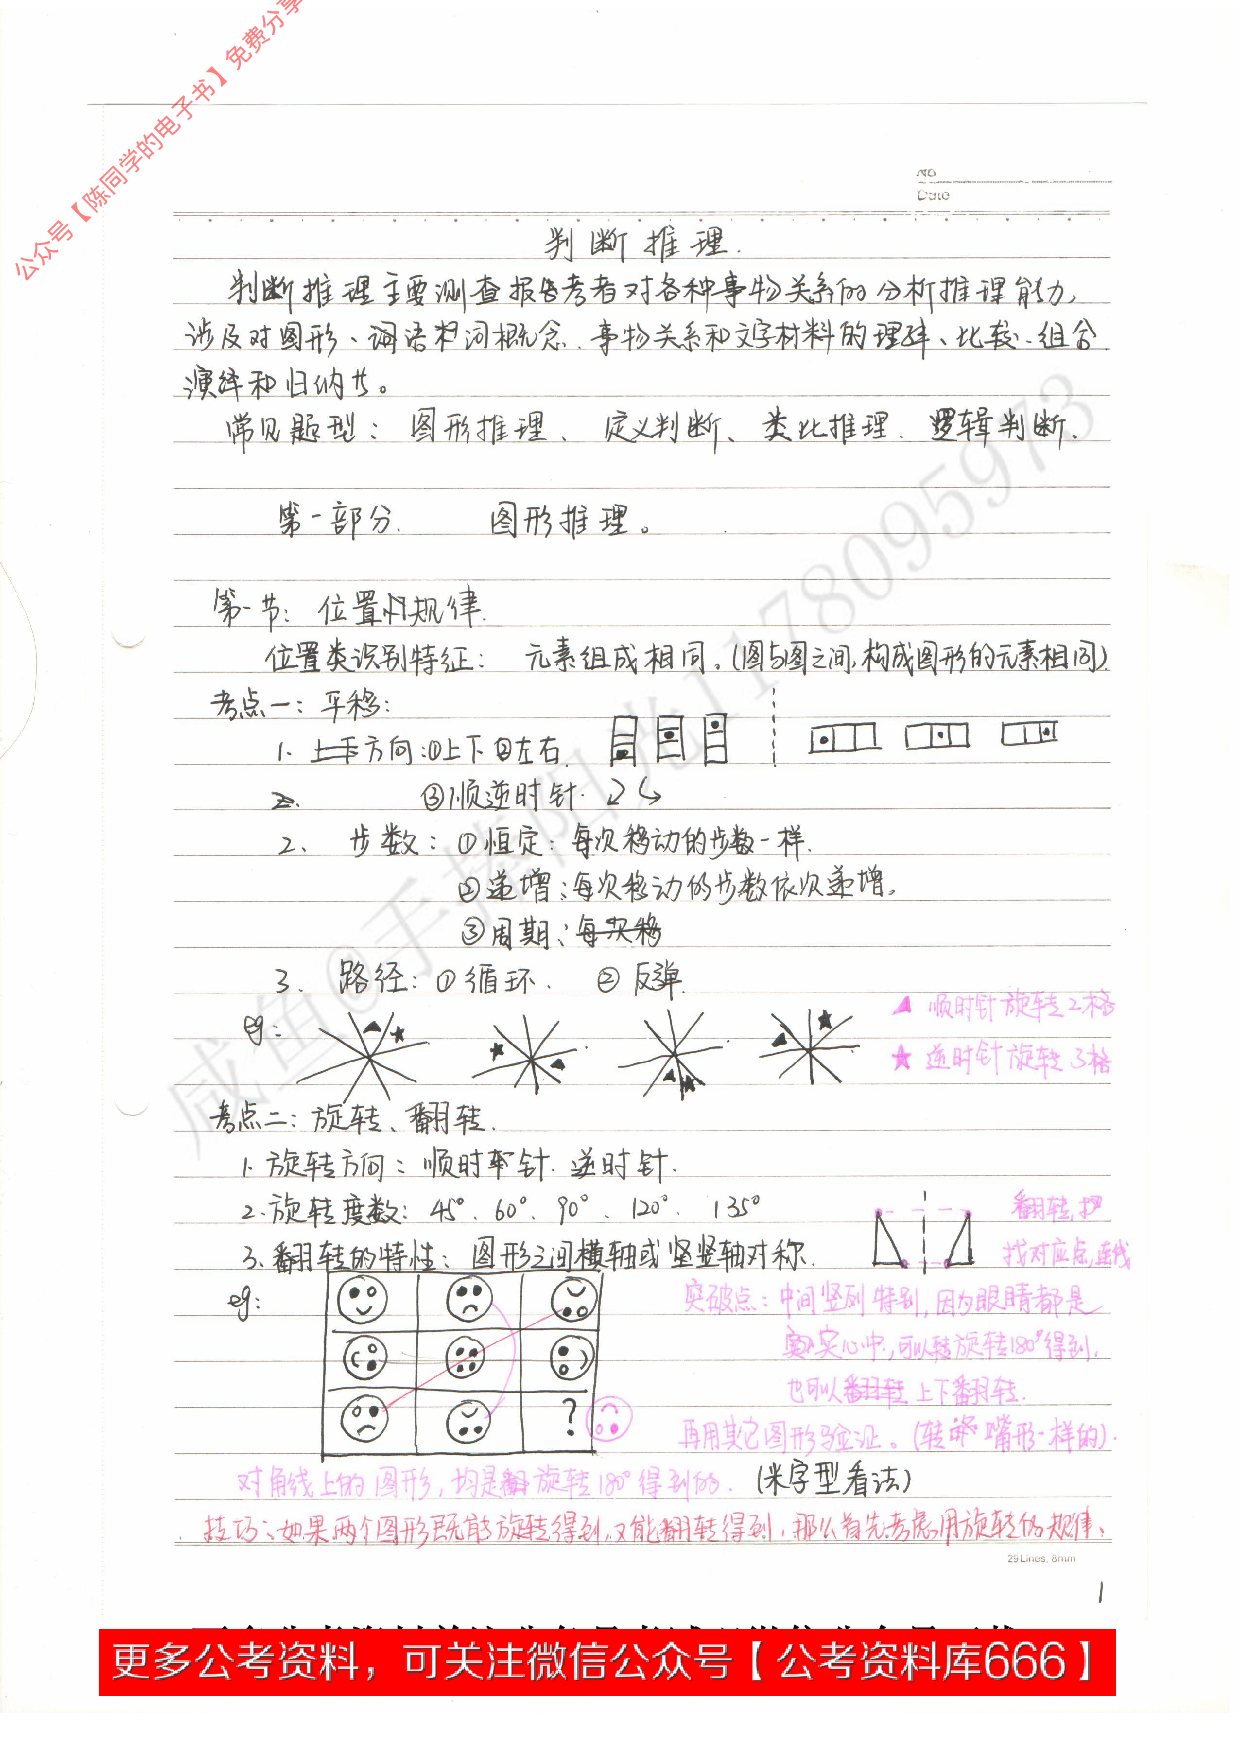 公众号【陈同学的电子书】免费分享
NO
Date
判断推理.
判断推理主要测查报告考者对各种事物关系的分析推理能力,
涉及对图形、词语和词概念.事物关系和文字材料的理解、比较、组合
演绎和归纳等。
常见题型:图形推理、定义判断、类比推理.逻辑判断.
第一部分. 图形推理。
第一节:位置规律.
位置类识别特征: 元素组成相同。(图与图之间,构成图形的元素相同)
考点一:平移:
1. 方向:①上下②左右.
2. ③顺逆时针.
2、步数:①恒定:每次移动的步数一样.
②递增:每次移动的步数依次递增。
③周期:每次移
3、路径:①循环. ②反弹.
eg:
▲ 顺时针旋转2格
★ 逆时针旋转3格
考点二:旋转、翻转.
1. 旋转方向:顺时针.逆时针.
2.旋转度数:45°.60°、90°、120°. 135°
翻转,找
3.翻转的特性:图形之间横轴或竖竖轴对称.
找对应点,连线
eg:
突破点:中间竖列特别,因为眼睛都是
实心中,可以转旋转180°得到.
也可以翻转上下翻转.
?
再用其它图形验证。(转 嘴形一样的).
对角线上的图形,均是翻旋转180°得到的. (米字型看法)
技巧:如果两个图形既能旋转得到,又能翻转得到,那么首先考虑用旋转的规律、
29Lines, 8mm
1
更多公考资料，可关注微信公众号【公考资料库666】
咸鱼@手捧阳光1178095973